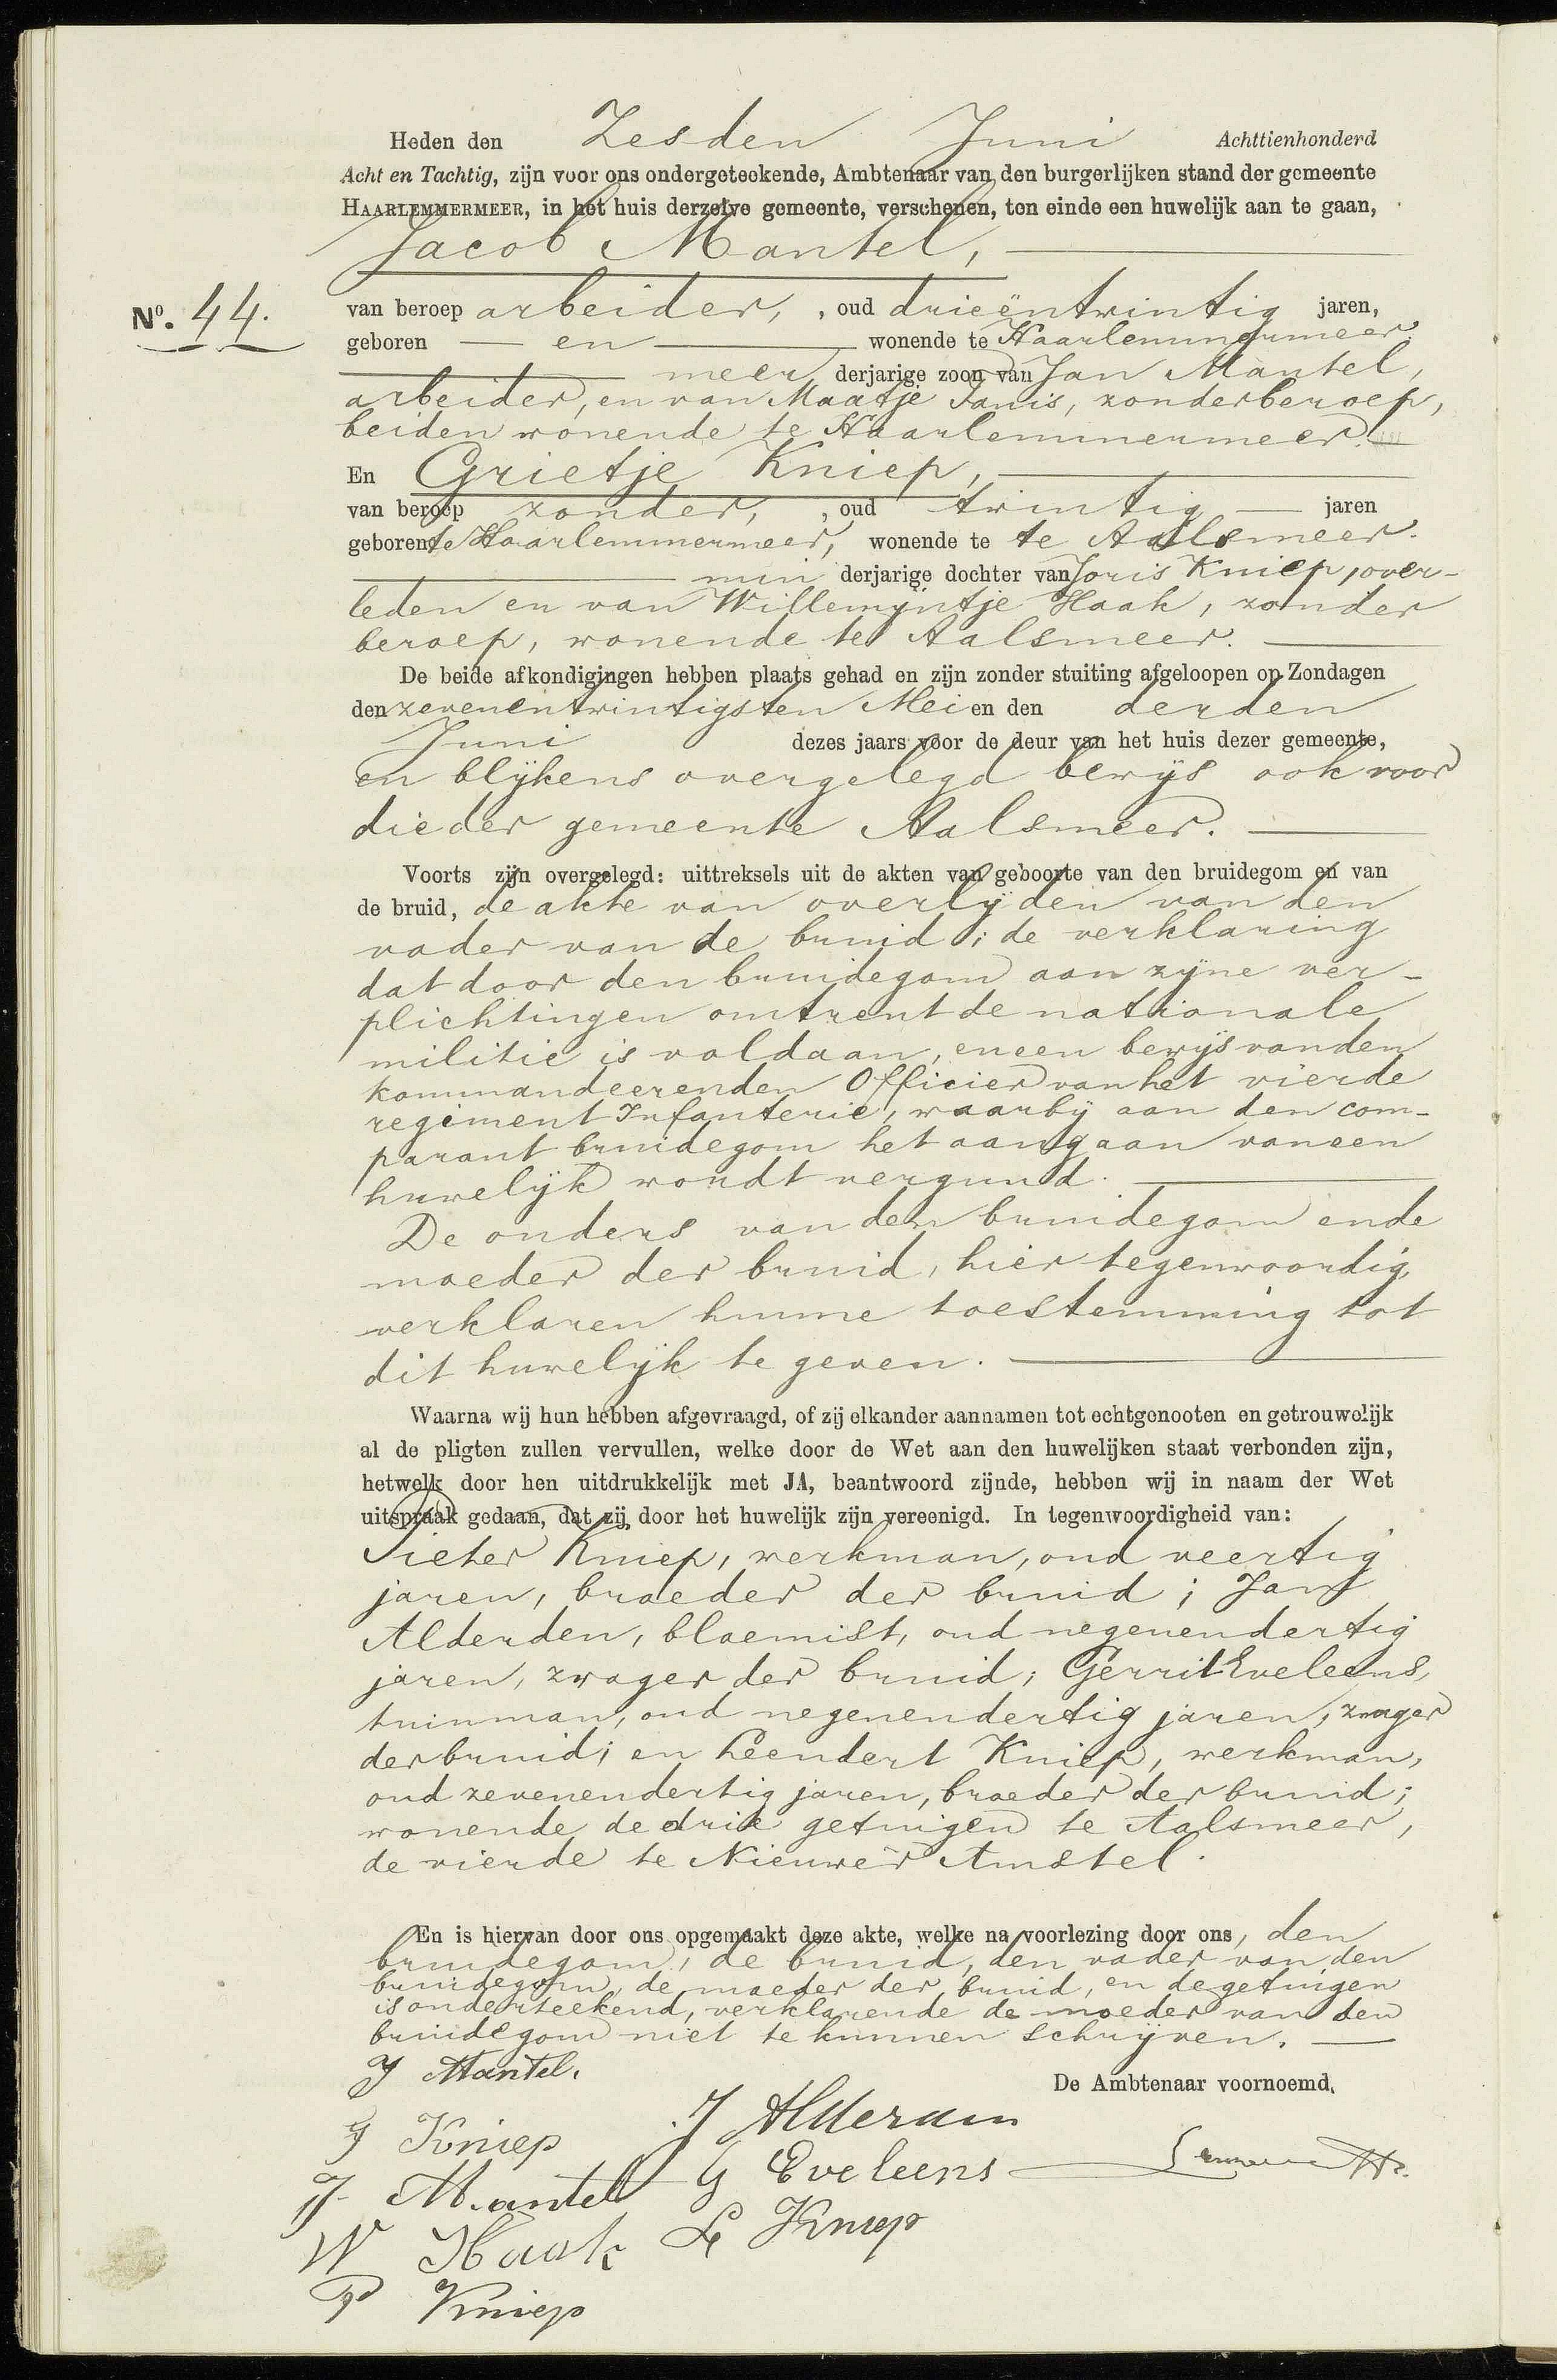 Heden den Zesden Juni Achttienhonderd
Acht en Tachtig, zijn voor ons ondergeteekende, Ambtenaar van den burgerlijken stand der gemeente
HAARLEMMERMEER, in het huis derzelve gemeente, verschenen, ten einde een huwelijk aan te gaan,
Jacob Mantel,
No. 44. van beroep arbeider, , oud drieëntwintig jaren,
geboren — en — wonende te Haarlemmermeer.
meer derjarige zoon van Jan Mantel,
arbeider, en van Maatje Janis, zonder beroep,
beiden wonende te Haarlemmermeer.
En Grietje Kniep,
van beroep zonder, , oud twintig — jaren
geboren te Haarlemmermeer, wonende te te Aalsmeer.
min derjarige dochter van Joris Kniep, over-
leden en van Willemijntje Haak, zonder
beroep, wonende te Aalsmeer.
De beide afkondigingen hebben plaats gehad en zijn zonder stuiting afgeloopen op Zondagen
den zevenentwintigsten Mei en den derden
Juni dezes jaars voor de deur van het huis dezer gemeente,
en blijkens overgelegd bewijs ook voor
die der gemeente Aalsmeer.
Voorts zijn overgelegd: uittreksels uit de akten van geboorte van den bruidegom en van
de bruid, de akte van overlijden van den
vader van de bruid; de verklaring
dat door den bruidegom aan zijne ver-
plichtingen omtrent de nationale
militie is voldaan, en een bewijs van den
kommandeerenden Officier van het vierde
regiment Infanterie, waarbij aan den com-
parant bruidegom het aangaan van een
huwelijk wordt vergund.
De ouders van den bruidegom en de
moeder der bruid, hier tegenwoordig,
verklaren hunne toestemming tot
dit huwelijk te geven.
Waarna wij hun hebben afgevraagd, of zij elkander aannamen tot echtgenooten en getrouwelijk
al de pligten zullen vervullen, welke door de Wet aan den huwelijken staat verbonden zijn,
hetwelk door hen uitdrukkelijk met JA, beantwoord zijnde, hebben wij in naam der Wet
uitspraak gedaan, dat zij door het huwelijk zijn vereenigd. In tegenwoordigheid van:
Pieter Kniep, werkman, oud veertig
jaren, broeder der bruid; Jan
Alderden, bloemist, oud negenendertig
jaren, zwager der bruid; Gerrit Eveleens,
tuinman, oud negenendertig jaren, zwager
der bruid; en Leendert Kniep, werkman,
oud zevenendertig jaren, broeder der bruid;
wonende de drie getuigen te Aalsmeer,
de vierde te Nieuwer Amstel.
En is hiervan door ons opgemaakt deze akte, welke na voorlezing door ons, den
bruidegom, de bruid, den vader van den
bruidegom, de moeder der bruid, en de getuigen
is onderteekend, verklarende de moeder van den
bruidegom niet te kunnen schrijven.
J Mantel.
De Ambtenaar voornoemd,
G Kniep J Alderden
J. Mantel G Eveleens
W Haak L Kniep
P Kniep